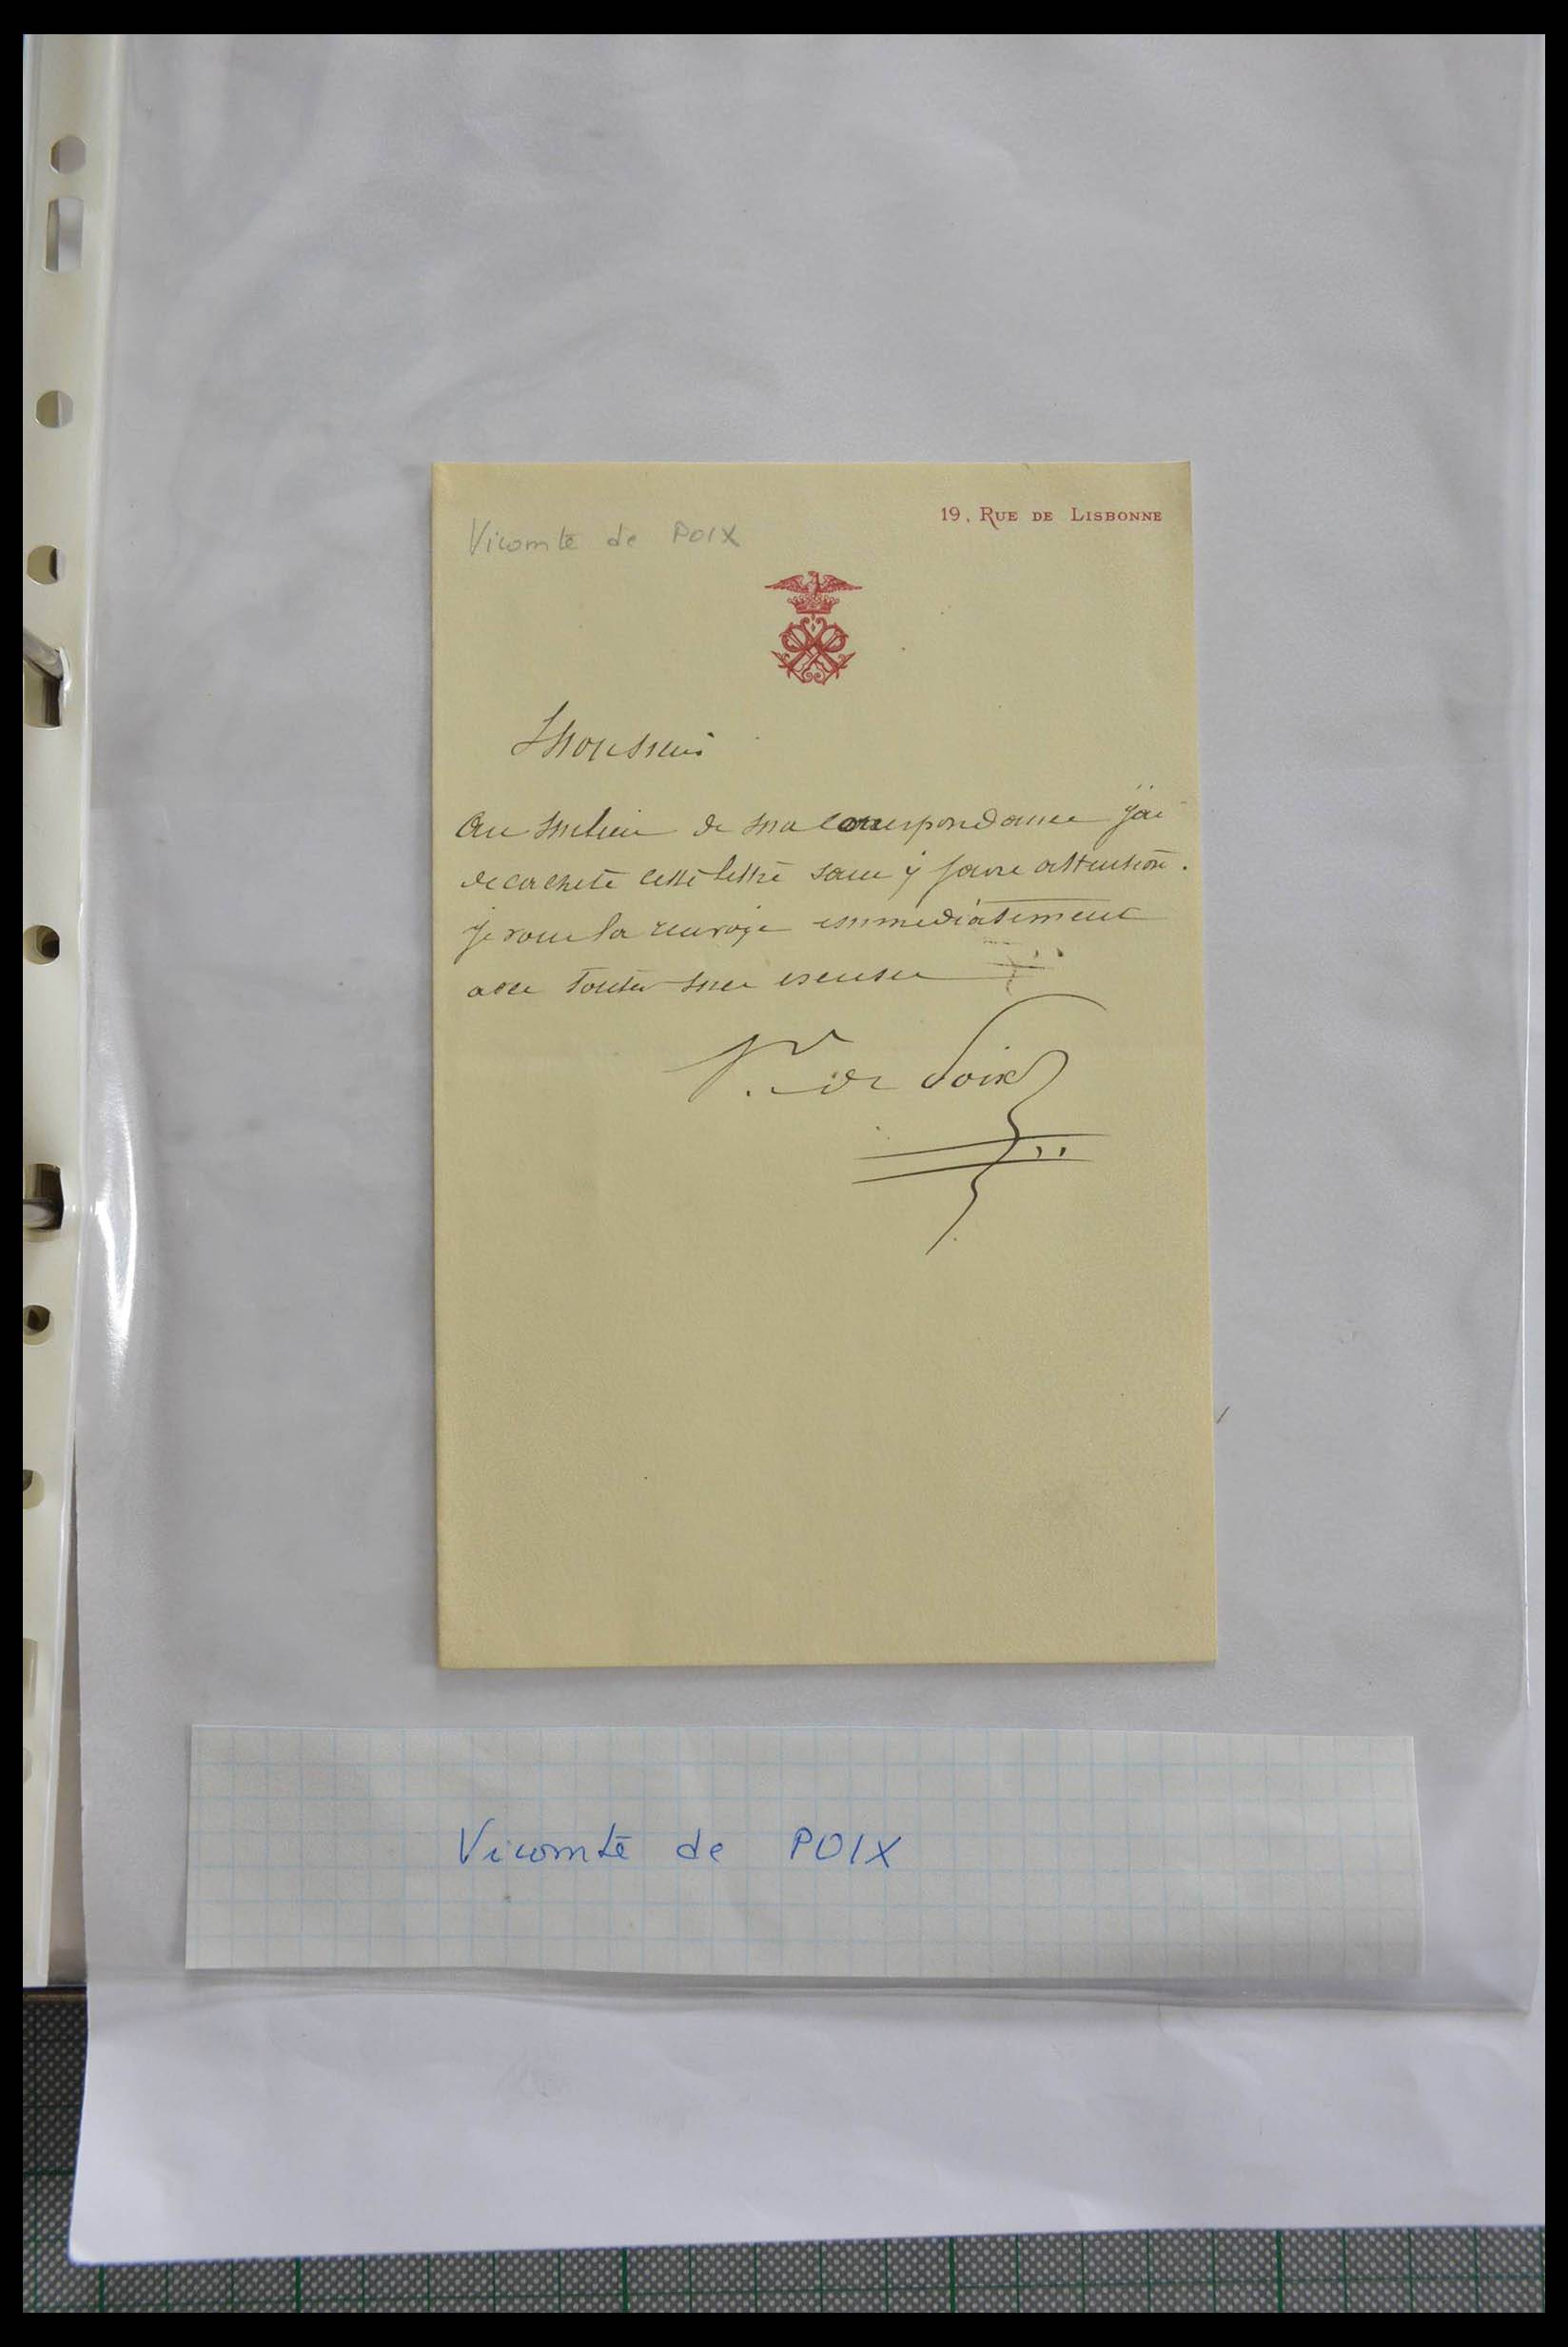 19, RUE DE LISBONNE
Vicomte de POIX
Monsieur
Au milieu de ma correspondance j'ai
decacheté cette lettre sans y faire attention.
je vous la renvoye immediatement
avec toutes mes excuses
V. de Poix
Vicomte de POIX